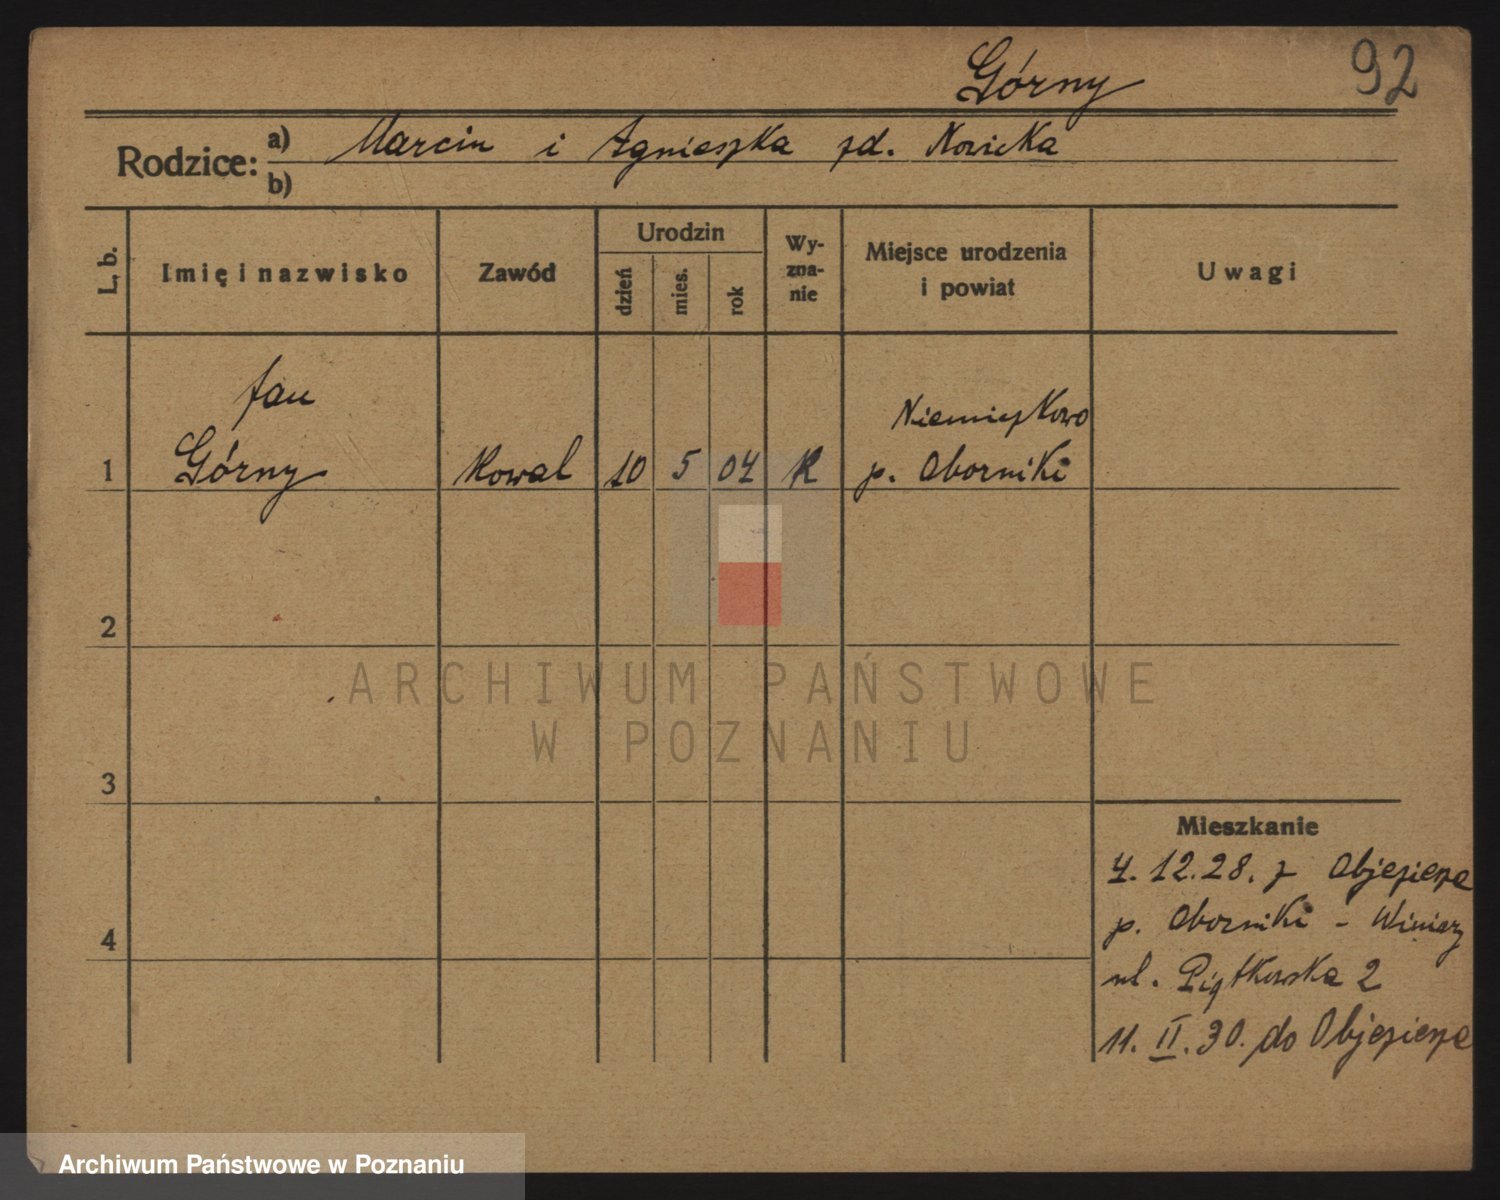 Górny
92
Rodzice: a) Marcin i Agnieszka zd. Nowicka
b)
L. b.
Imię i nazwisko
Zawód
Urodzin
dzień
mies.
rok
Wy-
zna-
nie
Miejsce urodzenia
i powiat
Uwagi
1
Jan
Górny
Kowal
10
5
04
K
Niemieczkowo
p. Oborniki
2
3
4
Mieszkanie
4.12.28. z Objezierze
p. Oborniki - Winiary
ul. Piątkowska 2
11. II. 30. do Objezierze
ARCHIWUM PAŃSTWOWE
W POZNANIU
Archiwum Państwowe w Poznaniu